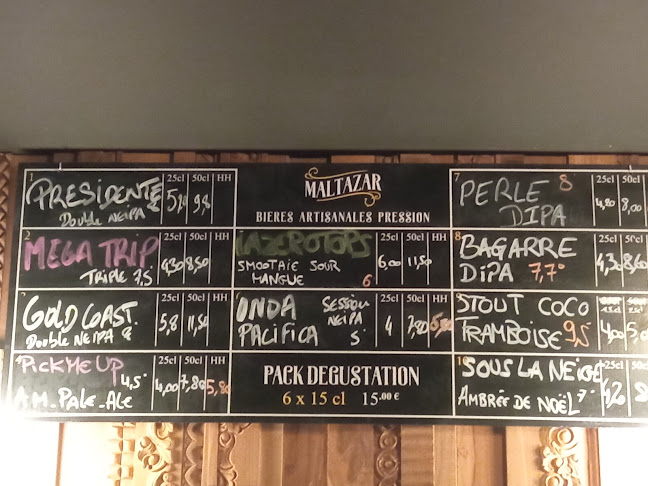 1 25cl 50cl HH
PRESIDENTE 9,8
Double NEIPA 8
2 25cl 50cl HH
MEGA TRIP 4,30 8,50
TRIPLE 7,5
25cl 50cl HH
GOLD COAST 5,8 11,50
Double NEIPA 8
4 25cl 50cl HH
PICK ME UP 4,5 4,00 7,80 5,80
AM. PALE. ALE
MALTAZAR
BIERES ARTISANALES PRESSION
25cl 50cl HH
6,00 11,50
SMOOTHIE SOUR
MANGUE 6
25cl 50cl HH
ONDA SESSION
NEIPA
PACIFICA 5 4 7,80
PACK DEGUSTATION
6 x 15 cl 15.00 €
7 25cl 50cl
PERLE 8 4,80 8,00
DIPA
8 25cl 50cl
BAGARRE 4,30 8,60
DIPA 7,7°
STOUT COCO
FRAMBOISE 9,5 4,00
10
SOUS LA NEIGE
AMBRÉE DE NOËL 7°